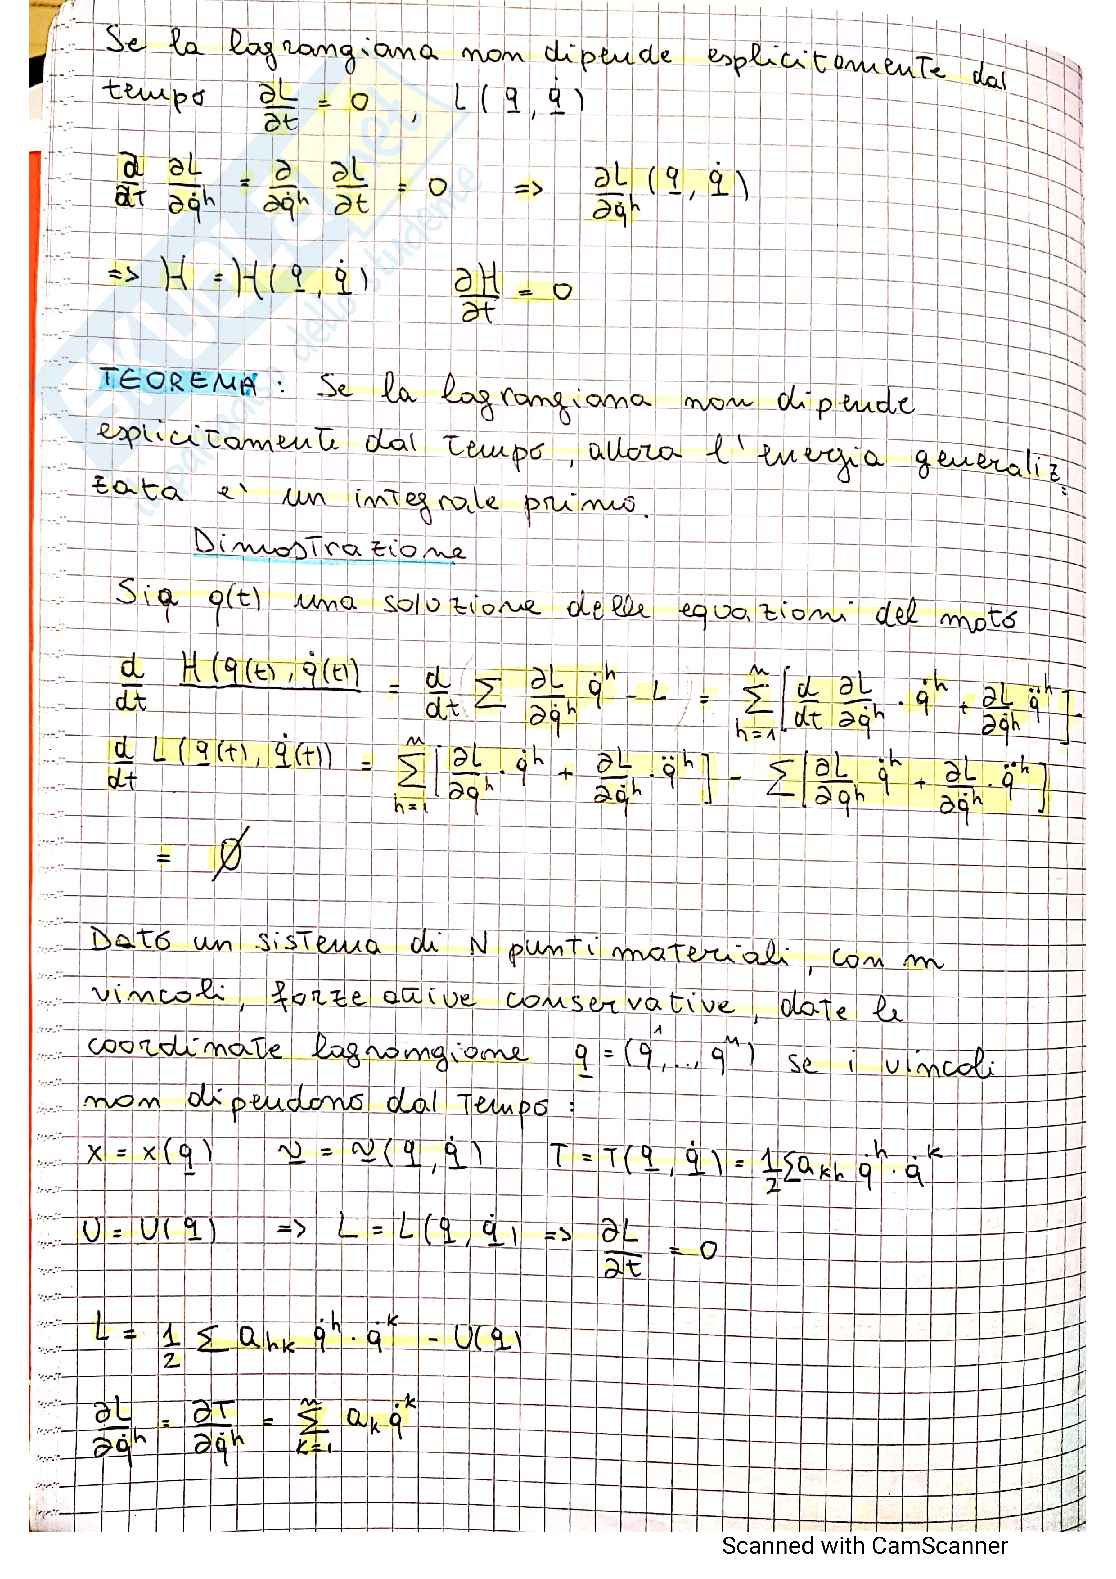 Se la lagrangiana non dipende esplicitamente dal
tempo ∂L/∂t = 0 , L(q, q̇)
∂/∂t ∂L/∂q̇ʰ = ∂/∂q̇ʰ ∂L/∂t = 0 => ∂L/∂q̇ʰ (q, q̇)
=> H = H(q, q̇) ∂H/∂t = 0
TEOREMA : Se la lagrangiana non dipende
esplicitamente dal tempo, allora l'energia generaliz
zata e' un integrale primo.
Dimostrazione
Sia q(t) una soluzione delle equazioni del moto
d/dt H(q(t), q̇(t)) = d/dt (∑ ∂L/∂q̇ʰ q̇ʰ - L) = ∑ⁿₕ₌₁ [d/dt ∂L/∂q̇ʰ · q̇ʰ + ∂L/∂q̇ʰ q̈ʰ] -
d/dt L(q(t), q̇(t)) = ∑ⁿₕ₌₁ [∂L/∂qʰ · q̇ʰ + ∂L/∂q̇ʰ · q̈ʰ] - ∑ [∂L/∂qʰ q̇ʰ + ∂L/∂q̇ʰ · q̈ʰ]
= Ø
Dato un sistema di N punti materiali, con m
vincoli, forze attive conservative, date le
coordinate lagrangiane q = (q¹, .., qⁿ) se i vincoli
non dipendono dal tempo :
x = x(q) v = v(q, q̇) T = T(q, q̇) = 1/2 ∑ aₖₕ q̇ʰ · q̇ᵏ
U = U(q) => L = L(q, q̇) => ∂L/∂t = 0
L = 1/2 ∑ aₕₖ q̇ʰ · q̇ᵏ - U(q)
∂L/∂q̇ʰ = ∂T/∂q̇ʰ = ∑ⁿₖ₌₁ aₖ q̇ᵏ
Scanned with CamScanner